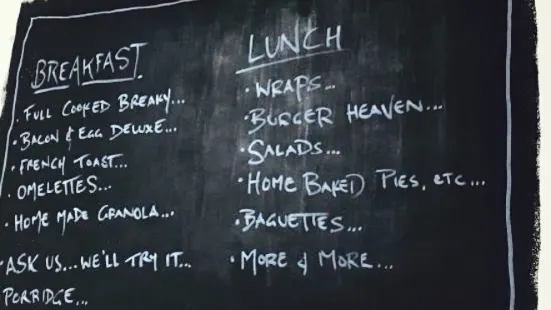 BREAKFAST
· FULL COOKED BREAKY...
· BACON & EGG DELUXE...
· FRENCH TOAST...
· OMELETTES...
· HOME MADE GRANOLA...
· ASK US...WE'LL TRY IT...
PORRIDGE...
LUNCH
· WRAPS...
· BURGER HEAVEN...
· SALADS...
· HOME BAKED PIES, ETC...
· BAGUETTES...
· MORE & MORE...